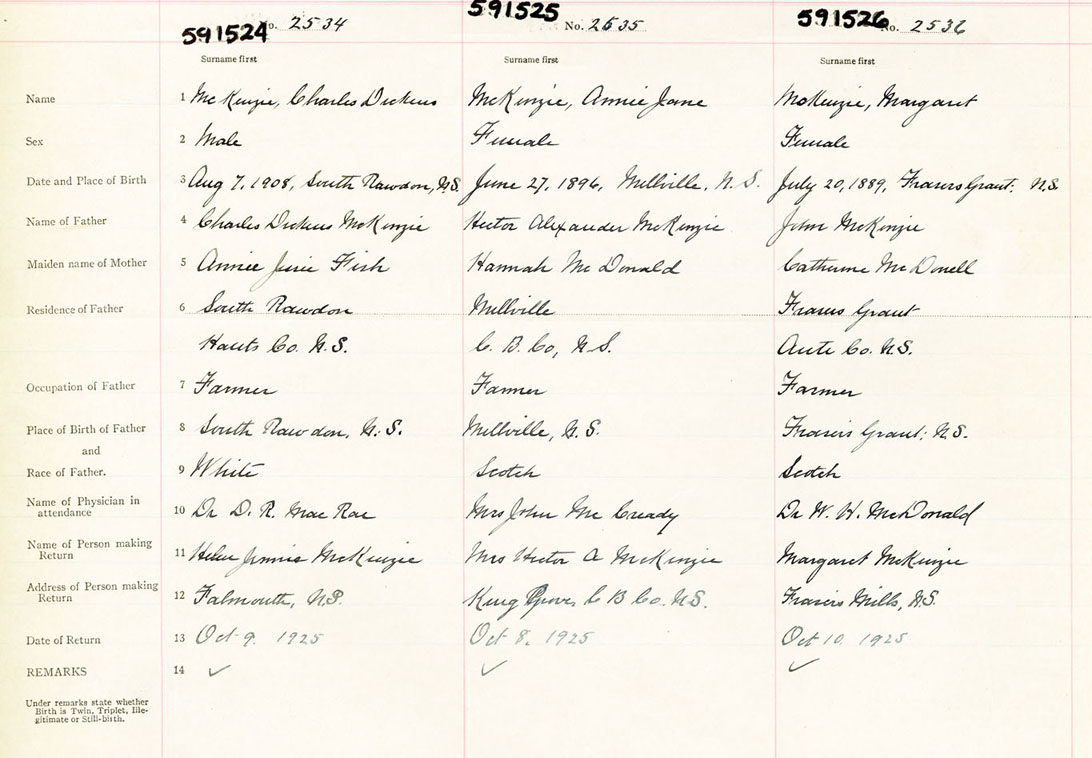 591524 No. 2534 591525 No. 2535 591526 No. 2536
Surname first Surname first Surname first
Name 1 McKenzie, Charles Dickens McKinzie, Annie Jane McKenzie, Margaret
Sex 2 Male Female Female
Date and Place of Birth 3 Aug 7, 1908, South Rawdon, N.S. June 27, 1896, Millville, N.S. July 20, 1889, Frasers Grant, N.S.
Name of Father 4 Charles Dickens McKenzie Hector Alexander McKinzie John McKinzie
Maiden name of Mother 5 Annie Fish Hannah McDonald Catherine McDonell
Residence of Father 6 South Rawdon Millville Frasers Grant
Hants Co. N.S. C. B. Co, N.S. Co. N.S.
Occupation of Father 7 Farmer Farmer Farmer
Place of Birth of Father 8 South Rawdon, N.S. Millville, N.S. Frasers Grant, N.S.
and
Race of Father. 9 White Scotch Scotch
Name of Physician in
attendance 10 Dr D. R. Mac Rae Mrs John Mc Cready Dr W. H. McDonald
Name of Person making
Return 11 Helen Jennie McKenzie Mrs Hector A McKinzie Margaret McKenzie
Address of Person making
Return 12 Falmouth, N.S. King C B Co. N.S. Frasers Mills, N.S.
Date of Return 13 Oct 9. 1925 Oct 8. 1925 Oct 10. 1925
REMARKS 14 ✓ ✓ ✓
Under remarks state whether
Birth is Twin, Triplet, Ille-
gitimate or Still-birth.